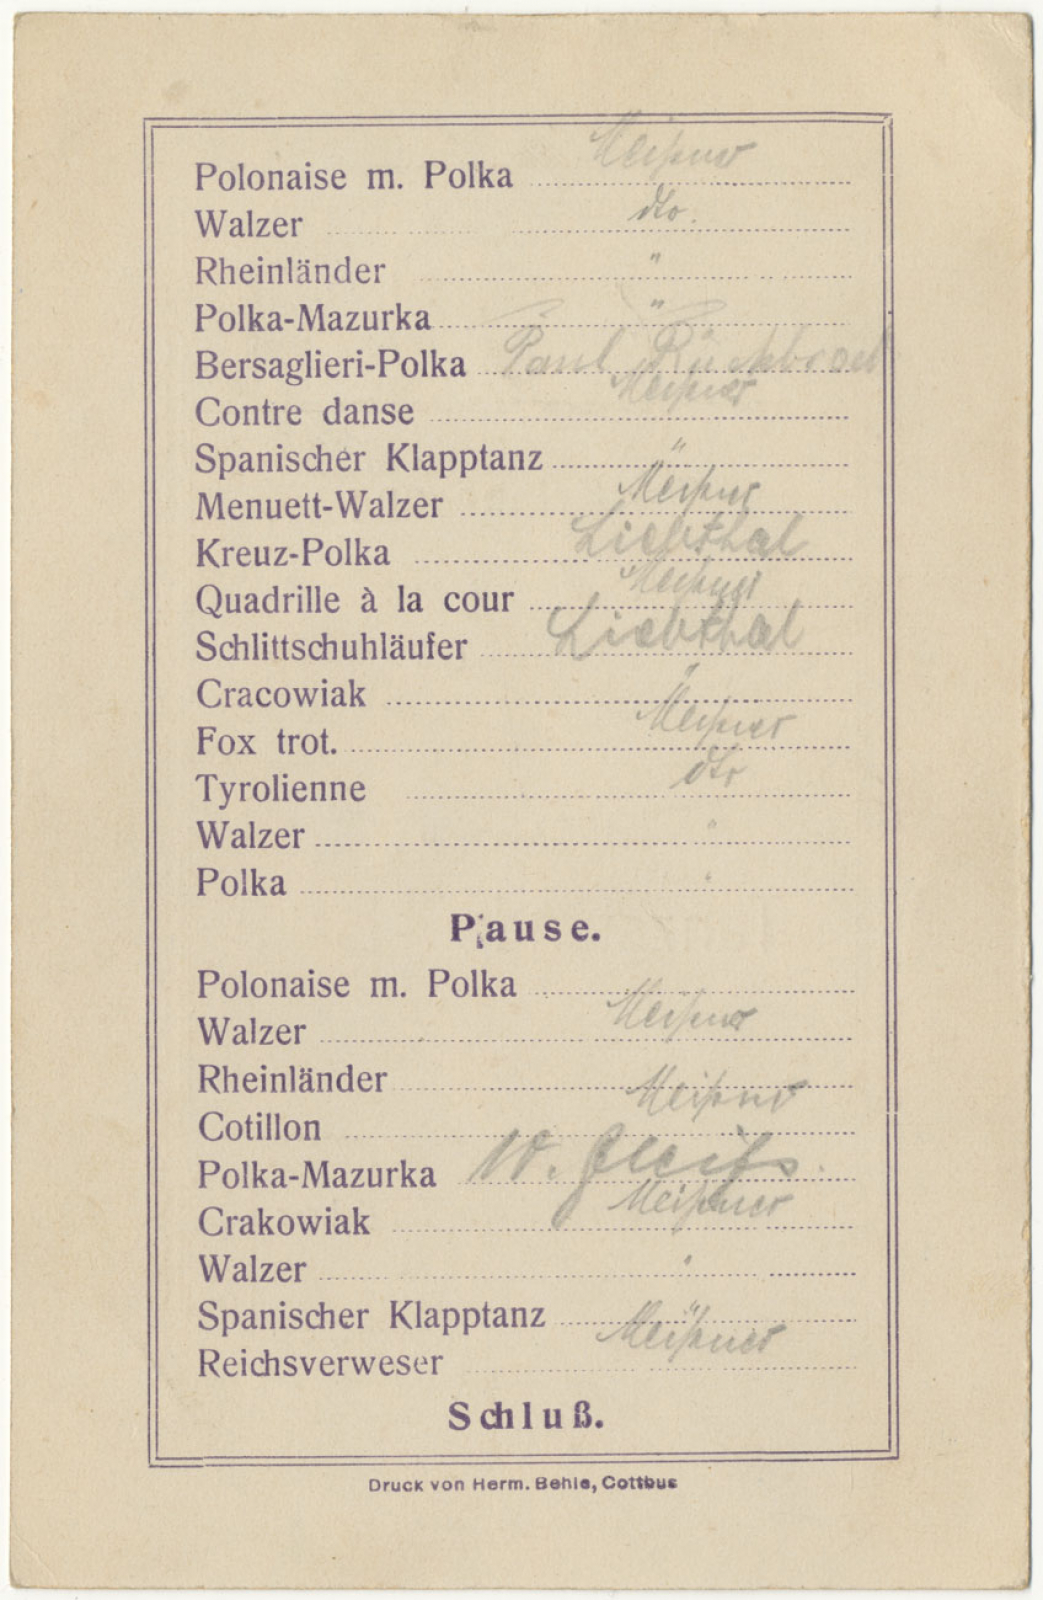 Polonaise m. Polka Meißner
Walzer dto.
Rheinländer "
Polka-Mazurka "
Bersaglieri-Polka Paul
Contre danse Meißner
Spanischer Klapptanz "
Menuett-Walzer Meißner
Kreuz-Polka Liebthal
Quadrille à la cour Meißner
Schlittschuhläufer Liebthal
Cracowiak "
Fox trot. Meißner
Tyrolienne dto
Walzer "
Polka "
Pause.
Polonaise m. Polka
Walzer Meißner
Rheinländer Meißner
Cotillon
Polka-Mazurka W.
Crakowiak Meißner
Walzer "
Spanischer Klapptanz "
Reichsverweser Meißner
Schluß.
Druck von Herm. Behle, Cottbus